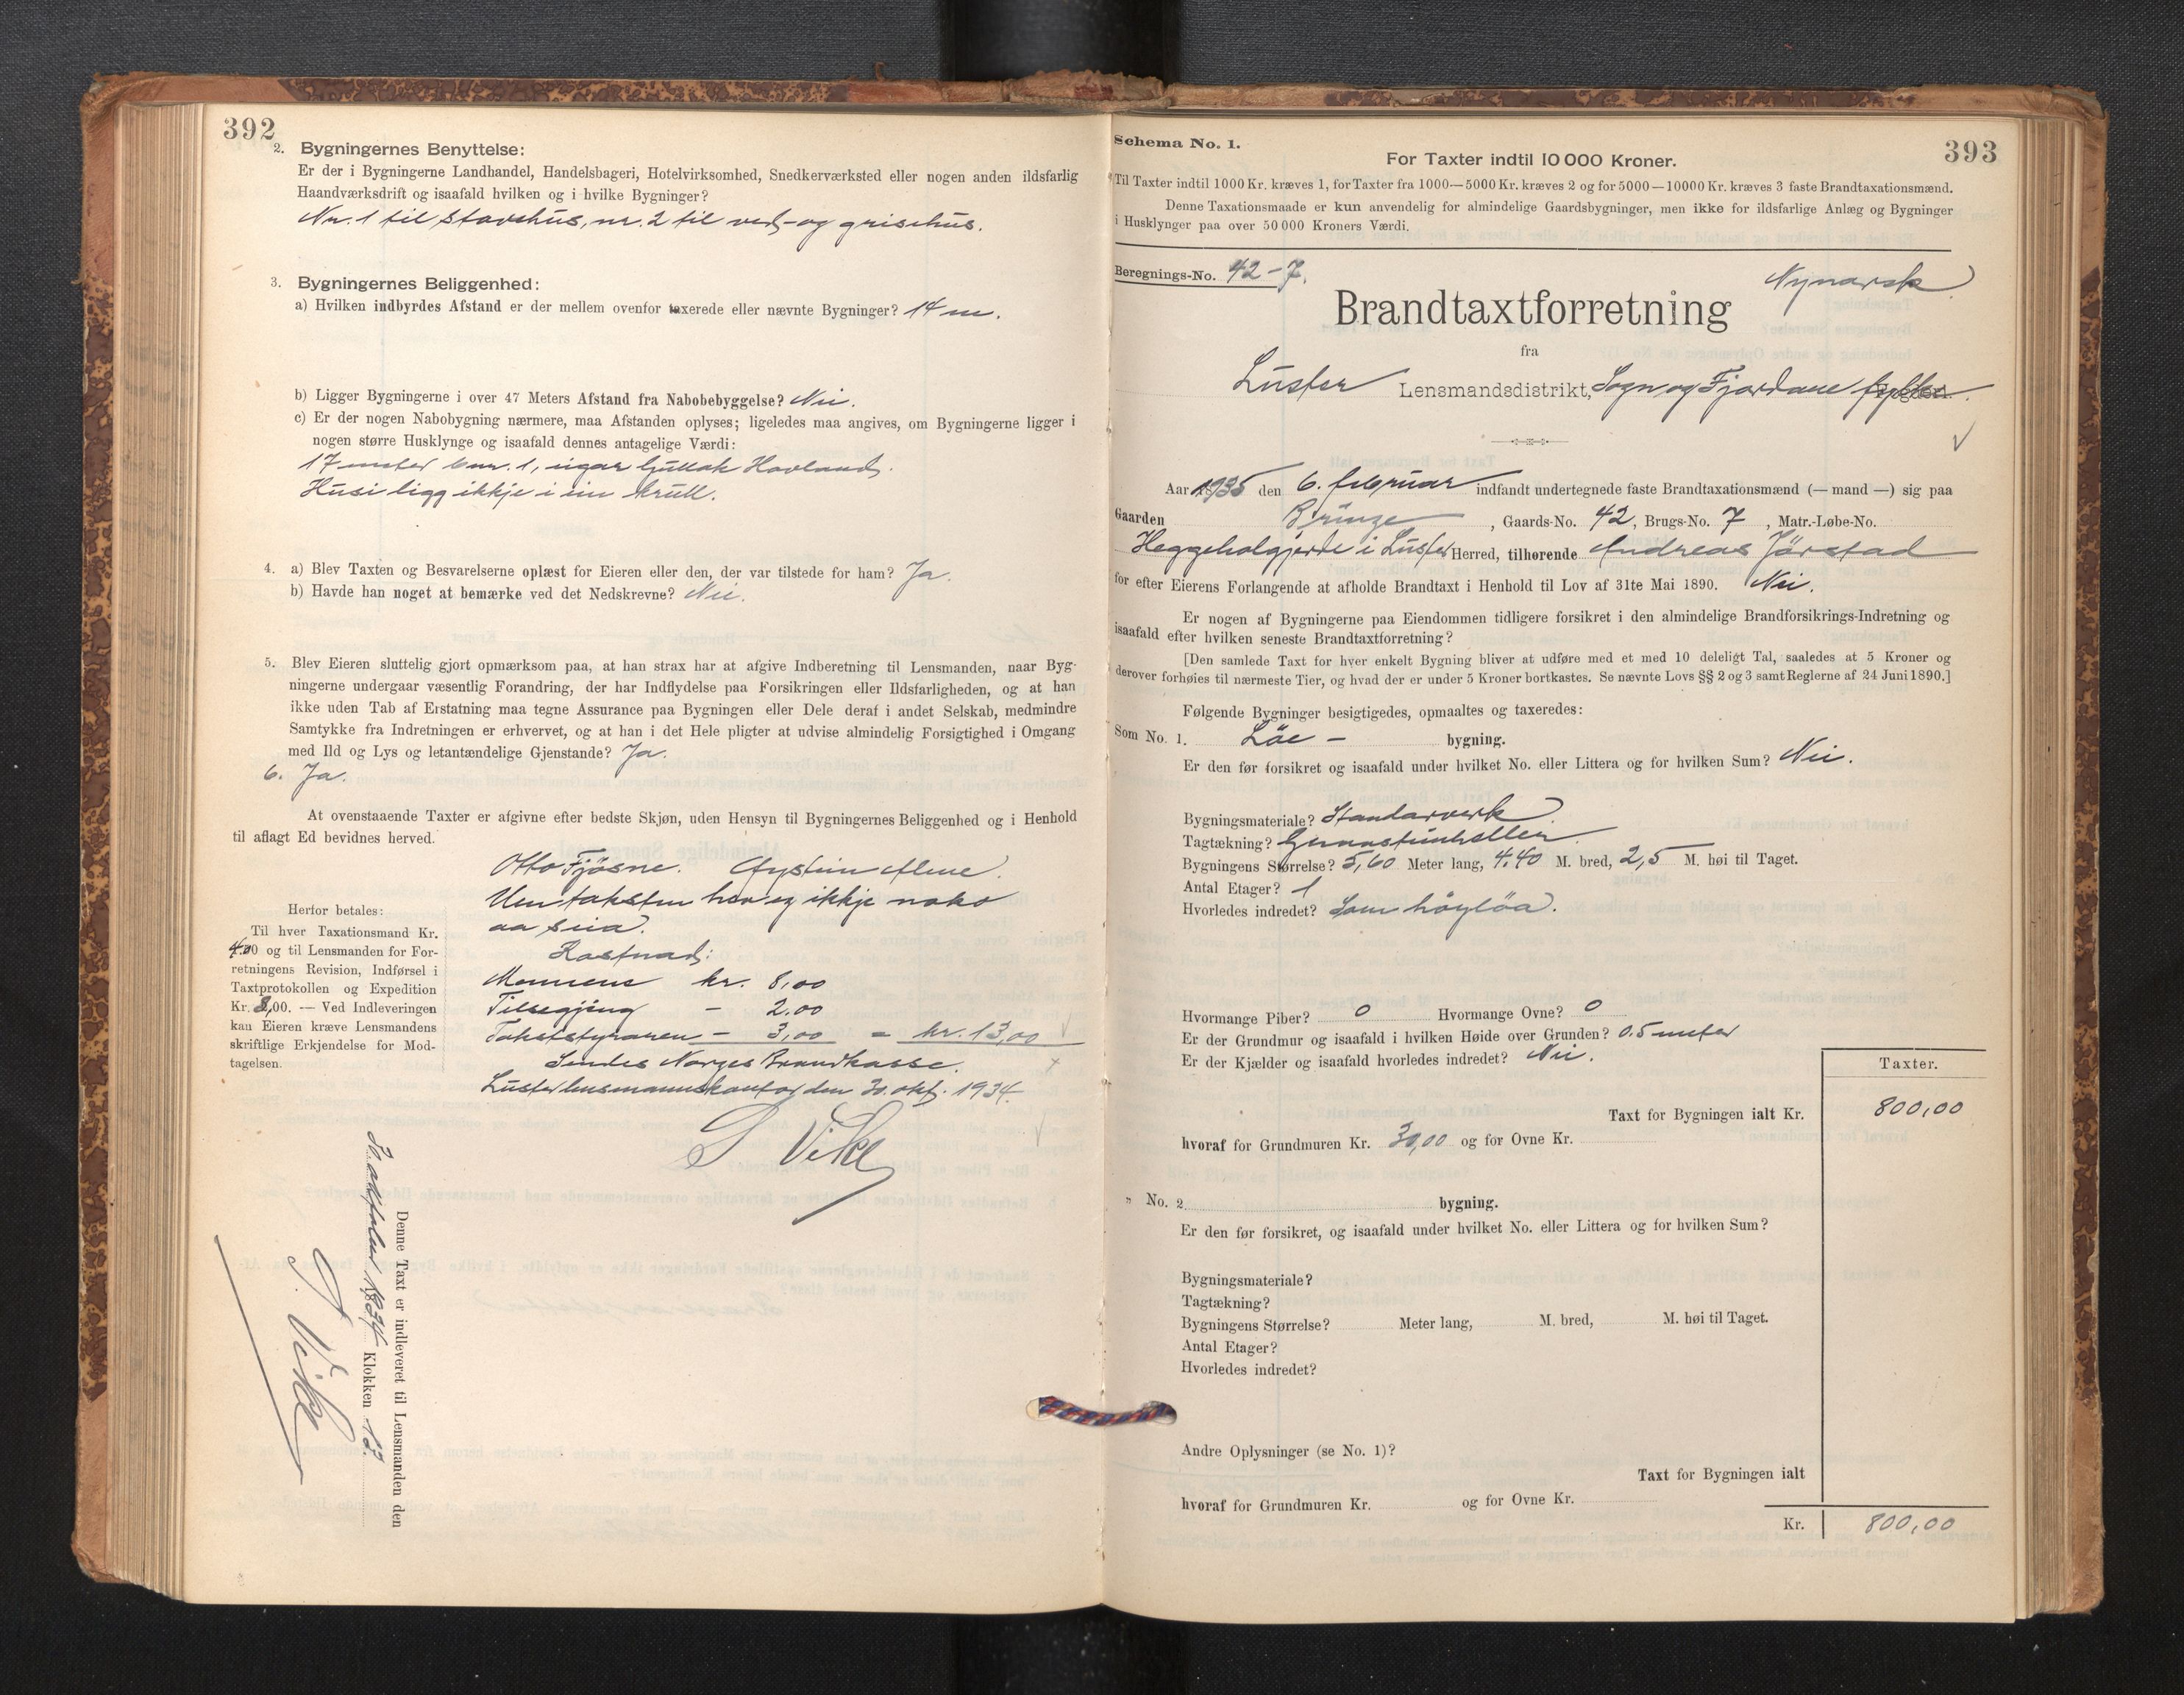 392
2. Bygningernes Benyttelse:
Er der i Bygningerne Landhandel, Handelsbageri, Hotelvirksomhed, Snedkerværksted eller nogen anden ildsfarlig
Haandværksdrift og isaafald hvilken og i hvilke Bygninger?
Nr. 1 til stovehus, nr. 2 til ved- og grisehus.
3. Bygningernes Beliggenhed:
a) Hvilken indbyrdes Afstand er der mellem ovenfor taxerede eller nævnte Bygninger? 14 m.
b) Ligger Bygningerne i over 47 Meters Afstand fra Nabobebyggelse? Nei.
c) Er der nogen Nabobygning nærmere, maa Afstanden oplyses; ligeledes maa angives, om Bygningerne ligger i
nogen større Husklynge og isaafald dennes antagelige Værdi:
17 meter bnr. 1, eigar Gullak Havland.
Husi ligg ikkje i ein krull.
4. a) Blev Taxten og Besvarelserne oplæst for Eieren eller den, der var tilstede for ham? Ja.
b) Havde han noget at bemærke ved det Nedskrevne? Nei.
5. Blev Eieren sluttelig gjort opmærksom paa, at han strax har at afgive Indberetning til Lensmanden, naar Byg-
ningerne undergaar væsentlig Forandring, der har Indflydelse paa Forsikringen eller Ildsfarligheden, og at han
ikke uden Tab af Erstatning maa tegne Assurance paa Bygningen eller Dele deraf i andet Selskab, medmindre
Samtykke fra Indretningen er erhvervet, og at han i det Hele pligter at udvise almindelig Forsigtighed i Omgang
med Ild og Lys og letantændelige Gjenstande? Ja.
6. Ja.
At ovenstaaende Taxter er afgivne efter bedste Skjøn, uden Hensyn til Bygningernes Beliggenhed og i Henhold
til aflagt Ed bevidnes herved.
Otto Fjøsne. Øystein
Um taksten hev eg ikkje noko
aa seia.
Kostnad:
Mennene kr. 8,00
Tilsegjing - 2.00
Takststyraren - 3,00 = kr. 13,00
Sendes Norges Brandkasse.
Luster lensmannskontor den 30. okt. 1934.
S Vike
Herfor betales:
Til hver Taxationsmand Kr.
4.00 og til Lensmanden for For-
retningens Revision, Indførsel i
Taxtprotokollen og Expedition
Kr. 3,00. — Ved Indleveringen
kan Eieren kræve Lensmandens
skriftlige Erkjendelse for Mod-
tagelsen.
Denne Taxt er indleveret til Lensmanden den
30. oktober 1934 Klokken 13
S. Vike
393
Schema No. 1.
For Taxter indtil 10 000 Kroner.
Til Taxter indtil 1000 Kr. kræves 1, for Taxter fra 1000—5000 Kr. kræves 2 og for 5000—10000 Kr. kræves 3 faste Brandtaxationsmænd.
Denne Taxationsmaade er kun anvendelig for almindelige Gaardsbygninger, men ikke for ildsfarlige Anlæg og Bygninger
i Husklynger paa over 50 000 Kroners Værdi.
Beregnings-No. 42-7.
Nynorsk
Brandtaxtforretning
fra
Luster Lensmandsdistrikt, Sogn og Fjordane fylke.
Aar 1935 den 6. februar indfandt undertegnede faste Brandtaxationsmænd (— mand —) sig paa
Gaarden Bringe, Gaards-No. 42, Brugs-No. 7, Matr.-Løbe-No.
Heggeholgjerde i Luster Herred, tilhørende Andreas Jårstad
for efter Eierens Forlangende at afholde Brandtaxt i Henhold til Lov af 31te Mai 1890. Nei.
Er nogen af Bygningerne paa Eiendommen tidligere forsikret i den almindelige Brandforsikrings-Indretning og
isaafald efter hvilken seneste Brandtaxtforretning?
[Den samlede Taxt for hver enkelt Bygning bliver at udføre med et med 10 deleligt Tal, saaledes at 5 Kroner og
derover forhøies til nærmeste Tier, og hvad der er under 5 Kroner bortkastes. Se nævnte Lovs §§ 2 og 3 samt Reglerne af 24 Juni 1890.]
Følgende Bygninger besigtigedes, opmaaltes og taxeredes:
Som No. 1. Løe - bygning.
Er den før forsikret og isaafald under hvilket No. eller Littera og for hvilken Sum? Nei.
Bygningsmateriale? Standarverk
Tagtækning? Grannsteinheller
Bygningens Størrelse? 5,60 Meter lang, 4.40 M. bred, 2,5 M. høi til Taget.
Antal Etager? 1
Hvorledes indredet? Som høyløa.
Hvormange Piber? 0 Hvormange Ovne? 0
Er der Grundmur og isaafald i hvilken Høide over Grunden? 0.5 meter
Er der Kjælder og isaafald hvorledes indredet? Nei.
Taxter.
Taxt for Bygningen ialt Kr. 800,00
hvoraf for Grundmuren Kr. 30,00 og for Ovne Kr.
" No. 2 bygning.
Er den før forsikret, og isaafald under hvilket No. eller Littera og for hvilken Sum?
Bygningsmateriale?
Tagtækning?
Bygningens Størrelse? Meter lang, M. bred, M. høi til Taget.
Antal Etager?
Hvorledes indredet?
Andre Oplysninger (se No. 1)?
Taxt for Bygningen ialt
hvoraf for Grundmuren Kr. og for Ovne Kr.
Kr. 800,00